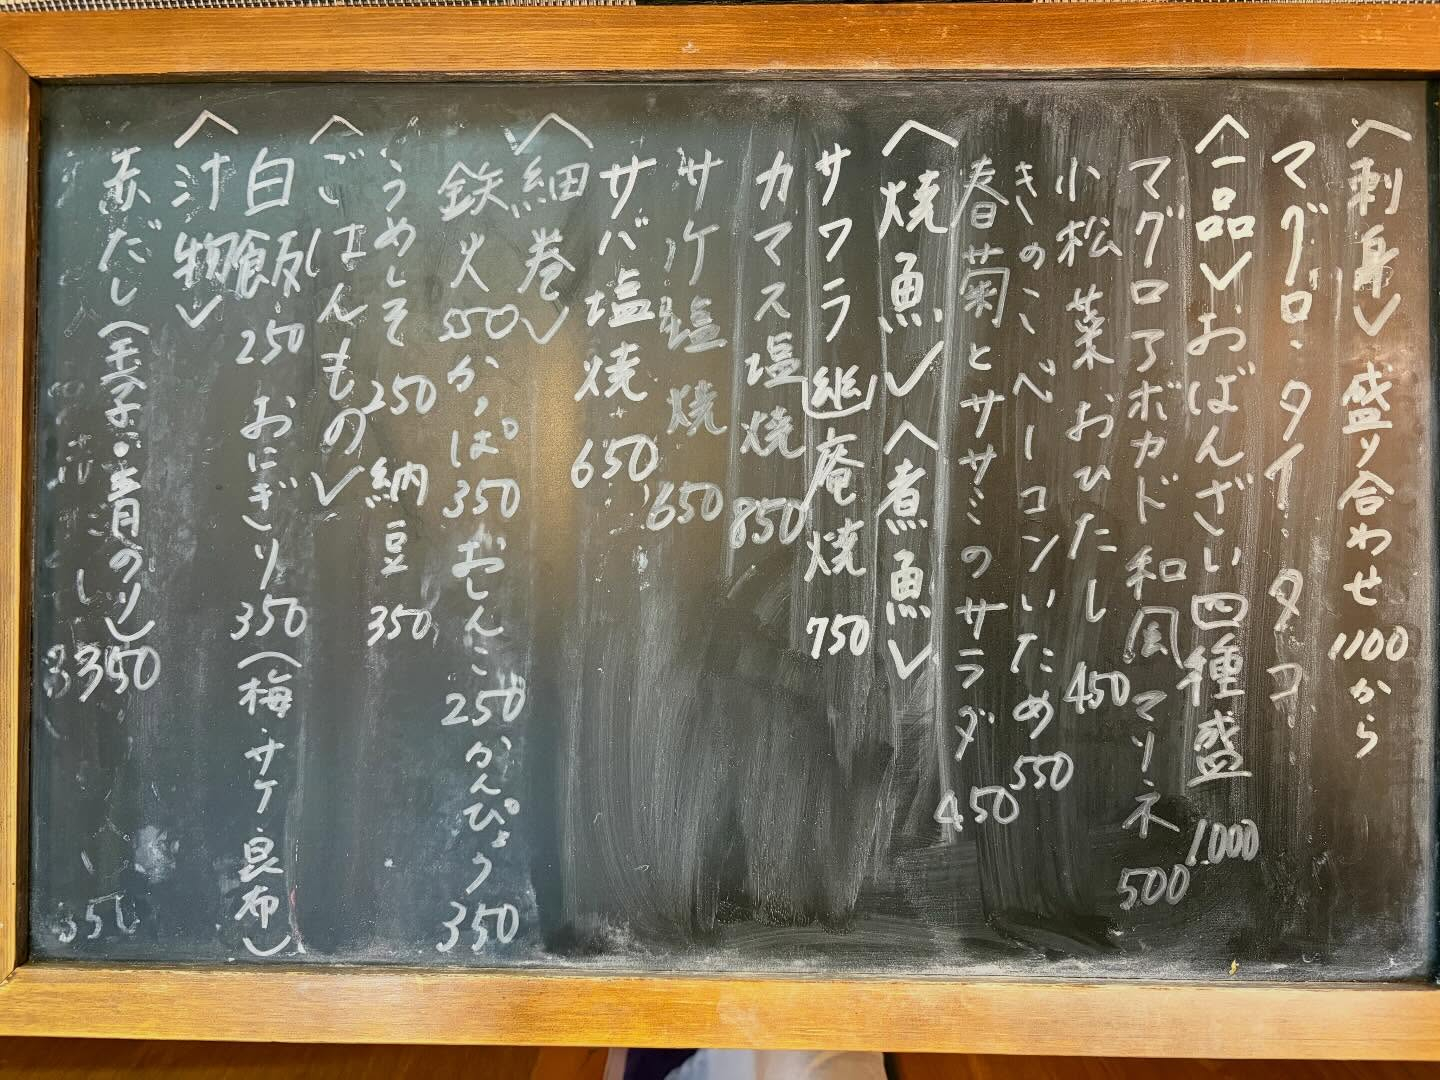 〈刺身〉盛り合わせ 1100から
マグロ・タイ・タコ
〈一品〉おばんざい四種盛 1000
マグロアボカド 和風マリネ 500
小松菜おひたし 450
きのこベーコンいため 550
春菊とササミのサラダ 450
〈焼魚〉〈煮魚〉
サワラ幽庵焼 750
カマス塩焼 850
サケ塩焼 650
サバ塩焼 650
〈細巻〉
鉄火 550 かっぱ 350 おしんこ 250 かんぴょう 350
うめしそ 250 納豆 350
〈ごはんもの〉
白飯 250 おにぎり 350 (梅・サケ・昆布)
〈汁物〉
赤だし (玉子・青のり) 350
350